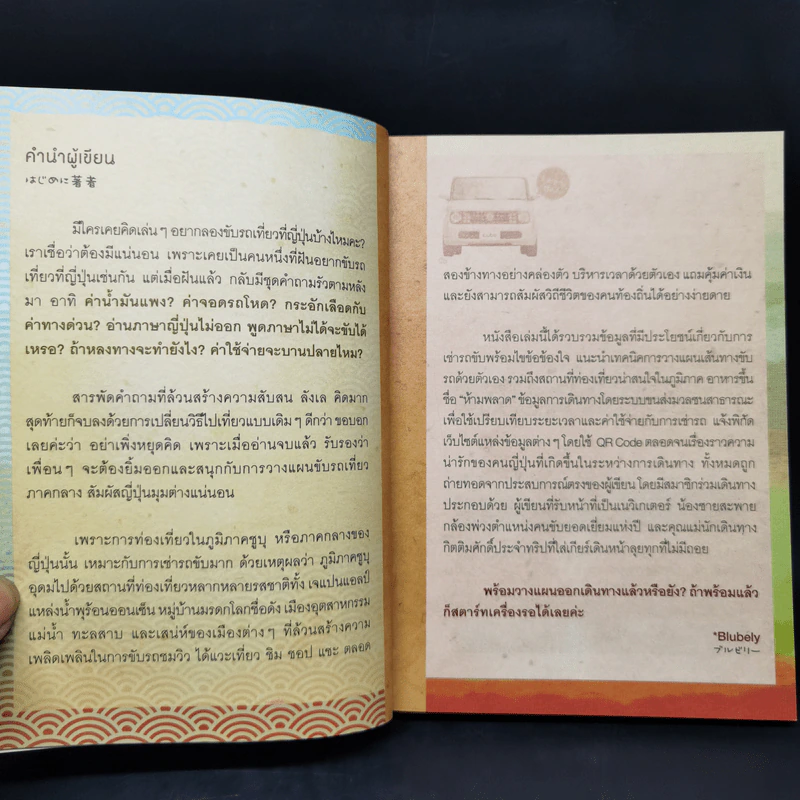 คำนำผู้เขียน
はじめに著者
มีใครเคยคิดเล่นๆ อยากลองขับรถเที่ยวที่ญี่ปุ่นบ้างไหมคะ?
เราเชื่อว่าต้องมีแน่นอน เพราะเคยเป็นคนหนึ่งที่ฝันอยากขับรถ
เที่ยวที่ญี่ปุ่นเช่นกัน แต่เมื่อฝันแล้ว กลับมีชุดคำถามรัวตามหลัง
มา อาทิ ค่าน้ำมันแพง? ค่าจอดรถโหด? กระอักเลือดกับ
ค่าทางด่วน? อ่านภาษาญี่ปุ่นไม่ออก พูดภาษาไม่ได้จะขับได้
เหรอ? ถ้าหลงทางจะทำยังไง? ค่าใช้จ่ายจะบานปลายไหม?
สารพัดคำถามที่ล้วนสร้างความสับสน ลังเล คิดมาก
สุดท้ายก็จบลงด้วยการเปลี่ยนวิธีไปเที่ยวแบบเดิมๆ ดีกว่า ขอบอก
เลยค่ะว่า อย่าเพิ่งหยุดคิด เพราะเมื่ออ่านจบแล้ว รับรองว่า
เพื่อนๆ จะต้องยิ้มออกและสนุกกับการวางแผนขับรถเที่ยว
ภาคกลาง สัมผัสญี่ปุ่นมุมต่างแน่นอน
เพราะการท่องเที่ยวในภูมิภาคชูบุ หรือภาคกลางของ
ญี่ปุ่นนั้น เหมาะกับการเช่ารถขับมาก ด้วยเหตุผลว่า ภูมิภาคชูบุ
อุดมไปด้วยสถานที่ท่องเที่ยวหลากหลายรสชาติทั้ง เจแปนแอลป์
แหล่งน้ำพุร้อนออนเซ็น หมู่บ้านมรดกโลกชื่อดัง เมืองอุตสาหกรรม
แม่น้ำ ทะลสาบ และเสน่ห์ของเมืองต่างๆ ที่ล้วนสร้างความ
เพลิดเพลินในการขับรถชมวิว ได้แวะเที่ยว ชิม ชอป แชะ ตลอด
สองข้างทางอย่างคล่องตัว บริหารเวลาด้วยตัวเอง แถมคุ้มค่าเงิน
และยังสามารถสัมผัสวิถีชีวิตของคนท้องถิ่นได้อย่างง่ายดาย
หนังสือเล่มนี้ได้รวบรวมข้อมูลที่มีประโยชน์เกี่ยวกับการ
เช่ารถขับพร้อมไขข้อข้องใจ แนะนำเทคนิคการวางแผนเส้นทางขับ
รถด้วยตัวเอง รวมถึงสถานที่ท่องเที่ยวน่าสนใจในภูมิภาค อาหารขึ้น
ชื่อ “ห้ามพลาด” ข้อมูลการเดินทางโดยระบบขนส่งมวลชนสาธารณะ
เพื่อใช้เปรียบเทียบระยะเวลาและค่าใช้จ่ายกับการเช่ารถ แจ้งพิกัด
เว็บไซต์แหล่งข้อมูลต่างๆ โดยใช้ QR Code ตลอดจนเรื่องราวความ
น่ารักของคนญี่ปุ่นที่เกิดขึ้นในระหว่างการเดินทาง ทั้งหมดถูก
ถ่ายทอดจากประสบการณ์ตรงของผู้เขียน โดยมีสมาชิกร่วมเดินทาง
ประกอบด้วย ผู้เขียนที่รับหน้าที่เป็นเนวิเกเตอร์ น้องชายสะพาย
กล้องพ่วงตำแหน่งคนขับยอดเยี่ยมแห่งปี และคุณแม่นักเดินทาง
กิตติมศักดิ์ประจำทริปที่ใส่เกียร์เดินหน้าลุยทุกที่ไม่มีถอย
พร้อมวางแผนออกเดินทางแล้วหรือยัง? ถ้าพร้อมแล้ว
ก็สตาร์ทเครื่องรอได้เลยค่ะ
*Blubely
ブルビリー